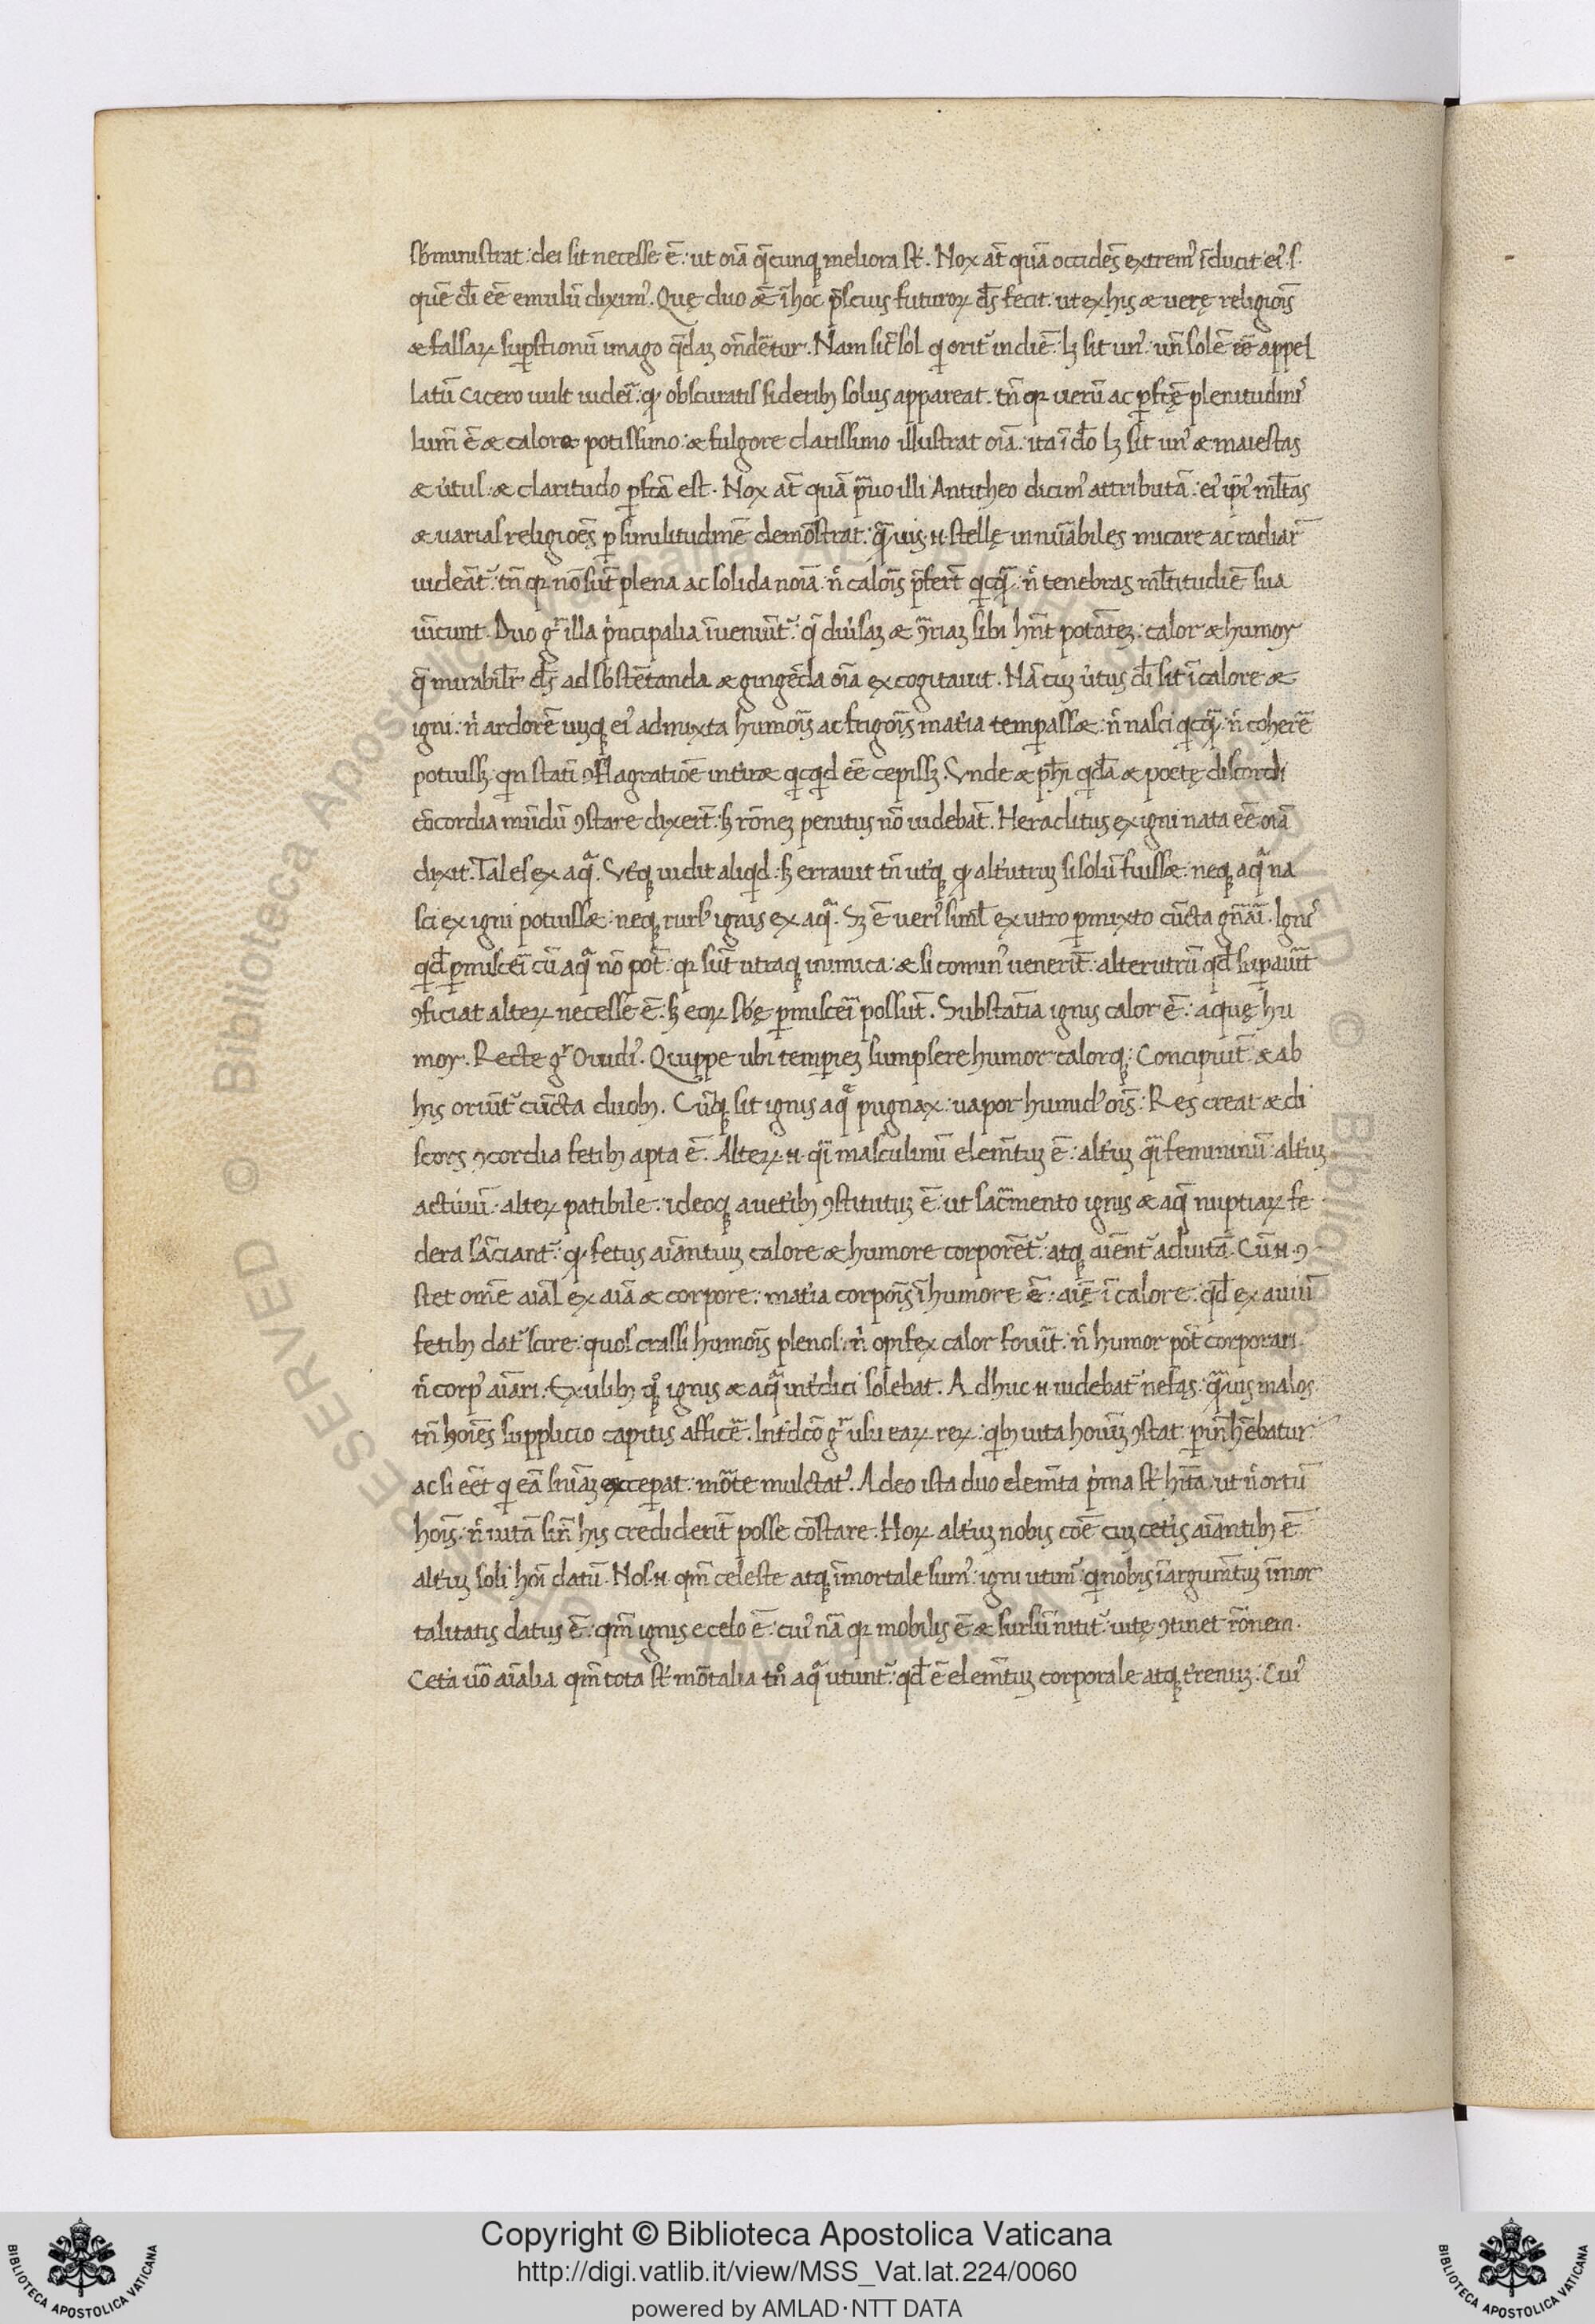 sƀministrat: dei sit necesse ē: ut oīa q̄cunqꝫ meliora st̄. Nox at̄ quā occidēs extremꝰ īducit: eiꝰ .s.
quē dī eē emulū diximꝰ. Quę duo ǣ ī hoc p̄scius futuroꝝ d̄s fecit: ut ex his æ verę religiōis
æ falsaꝝ suꝑstitionū imago q̄daꝫ on̄dēretur. Nam sic̄ sol qi orit᷑ in diē: lꝫ sit unꝰ: un̄ solē eē appel
latū Cicero uult uideri: ꝙ obscuratis sideribꝫ solus appareat. tn̄ qꝛ uerū ac ꝑfctę plenitudinis
lum̄ ē æ calore potissimo: æ fulgore clarissimo illustrat oīa: ita ī d̄o lꝫ sit unꝰ æ maiestas
æ uirtus: æ claritudo ꝑfcā est. Nox at̄ quā p̄uo illi Antitheo dicimꝰ attributā: eiꝰ ip̄iꝰ ml̄tas
æ uarias religiōes ꝑ similitudinē demōstrat: q̄uis .n. stellę innūabiles micare ac radiar̄
uideāt᷑: tn̄ qꝛ nō sūt plena ac solida noīa: n̄ caloris p̄ferūt qicq̄: n̄ tenebras ml̄titudīe sua
uīcunt. Duo gͬ illa pͥncipalia īueniūt᷑: q̄ diuͥsaꝫ æ ꝯriaꝫ sibi hn̄t potāteꝫ: calor æ humor
q̄ mirabilr̄ d̄s ad sƀstētanda æ gingēda oīa excogitauit. Nā cuꝫ uͥtus d̄i sit ī calore æ
igni: nͥ ardorē uiꝫqꝫ eiꝰ admixta humoris ac frigoris mat͛ia temꝑassæ: n̄ nasci qicq̄: n̄ coherē
potuissꝫ: qin statī ꝯflagratiōe int͛iræ qicqid eē cepissꝫ. Vnde æ ph̄i qidā æ poetę discordi
cōcordia mūdū ꝯstare dixer̄t: sꝫ rōneꝫ penitus nō uidebāt. Heraclitus ex igni nata eē oīa
dixit. Tales ex aqͣ. Vt͛qꝫ uidit aliqid: sꝫ errauit tn̄ ut͛qꝫ ꝙ alt͛utruꝫ si solū fuissæ: neqꝫ aqͣ na
sci ex igni potuissæ: neqꝫ rursꝰ ignis ex aqͣ. Sꝫ ē ueriꝰ siml̄ ex utro ꝑmixto cūcta gn̄ari. Ignis
qid̄ ꝑmisceri cū aqͣ nō pōt: qꝛ sūt utraqꝫ inimica: æ si cominꝰ uenerīt: alterutrū qd̄ suꝑauīt
ꝯficiat alteꝝ necesse ē: sꝫ eoꝝ sƀę ꝑmisceri possūt. Substātia ignis calor ē: aquę hu
mor. Recte gͬ Ouidiꝰ. Quippe ubi temꝑieꝫ sumpsere humor calorqꝫ: Concipiūt: æ ab
his oriūt᷑ cūcta duobꝫ. Cūqꝫ sit ignis aqͣ pugnax: uapor humidꝰ oīs: Res creat æ di
scors ꝯcordia fetibꝫ apta ē. Alteꝝ .n. qͣsi masculinū elem̄tuꝫ ē: alt͛uꝫ qͣsi femininū: alt͛uꝫ
actiuū: alteꝝ patibile: ideoqꝫ a uet͛ibꝫ ꝯstitutuꝫ ē: ut sacͣmento ignis æ aqͣ nuptiaꝝ fe
dera sāciant᷑: ꝙ fetus aiāntiuꝫ calore æ humore corporēt᷑: atqꝫ aīent᷑ ad uitā. Cū .n. ꝯ
stet omē aīal ex aīa æ corpore: mat͛ia corporis ī humore ē: aīę ī calore: qd̄ ex auiū
fetibꝫ dat᷑ scire: quos crassi humoris plenos: nͥ opifex calor fouīt: n̄ humor pōt corporari.
n̄ corpꝰ aīari. Exulibꝫ qͦqꝫ ignis æ aqͣ int͛dici solebat. Adhuc .n. uidebat᷑ nefas: qͣuis malos
tn̄ hoīes supplicio capitis afficē. Int͛dc̄o gͬ usu eaꝝ reꝝ: qibꝫ uita hoīuꝫ ꝯstat: ꝑin̄ hēbatur
ac si eēt qi eā sn̄iaꝫ exceꝑat: mōte mulctatꝰ. Adeo ista duo elem̄ta pͥma st̄ hīta: ut n̄ ortū
hoīs: n̄ uitā sin̄ his crediderīt posse cōstare. Hoꝝ alt͛uꝫ nobis cōe cuꝫ cet͛is aiāntibꝫ ē
alt͛uꝫ soli hoī datū. Nos .n. qm̄ celeste atqꝫ īmortale sumꝰ: igni utimꝰ: qi nobis ī argum̄tuꝫ īmor
talitatis datus ē: qm̄ ignis e celo ē: cuiꝰ nā qꝛ mobilis ē æ sursū nitit᷑: uitę ꝯtinet rōnem.
Cet͛a uͦo aīalia qm̄ tota st̄ mōtalia tn̄ aqͣ utunt᷑: qd̄ ē elem̄tuꝫ corporale atqꝫ t͛renuꝫ: Cuiꝰ
Copyright © Biblioteca Apostolica Vaticana
http://digi.vatlib.it/view/MSS_Vat.lat.224/0060
powered by AMLAD·NTT DATA